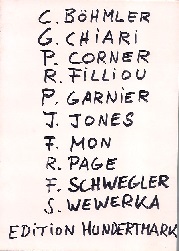 C. BÖHMLER
G. CHIARI
P. CORNER
R. FILLIOU
P. GARNIER
J. JONES
F. MON
R. PAGE
F. SCHWEGLER
S. WEWERKA
EDITION HUNDERTMARK